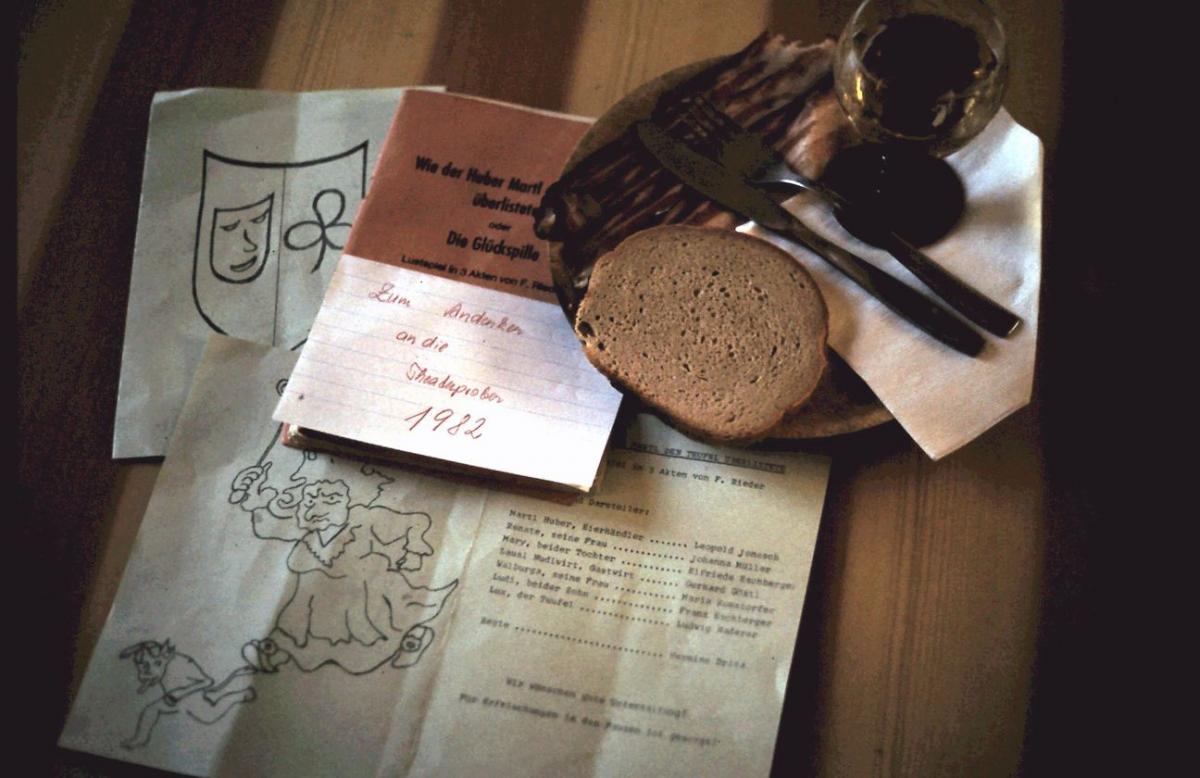 Wie der Huber Martl
überlistete
oder
Die Glückspille
Lustspiel in 3 Akten von F. Rieder
Zum Andenken
an die
Theaterproben
1982
DEN TEUFEL ÜBERLISTETE
in 3 Akten von F. Rieder
Darsteller:
Martl Huber, Eierhändler ....... Leopold Jonasch
Renate, seine Frau ............ Johanna Müller
Mary, beider Tochter .......... Elfriede
Gastwirt ....... Gerhard
Walburga, seine Frau .......... Maria
Ludi, beider Sohn ............. Franz
Lux, der Teufel ............... Ludwig
Regie ......................... Hermine
Wir wünschen gute Unterhaltung!
Für Erfrischungen in den Pausen ist gesorgt!